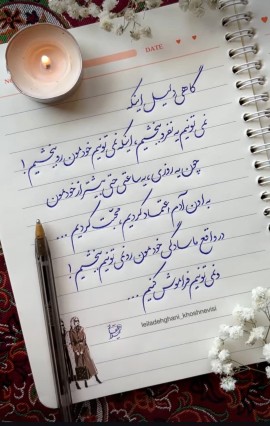 DATE
گاهی دلیل اینکه
نمی‌تونیم یه نفرو ببخشیم، اینکه نمی‌تونیم خودمون رو ببخشیم!
چون یه روزی، یه ساعتی حتی بیشتر از خودمون
به اون آدم اعتماد کردیم، محبت کردیم ...
در واقع ما سادگی خودمون رو نمی‌تونیم ببخشیم!
نمی‌تونیم فراموش کنیم ...
leiladehghani_khoshnevisi